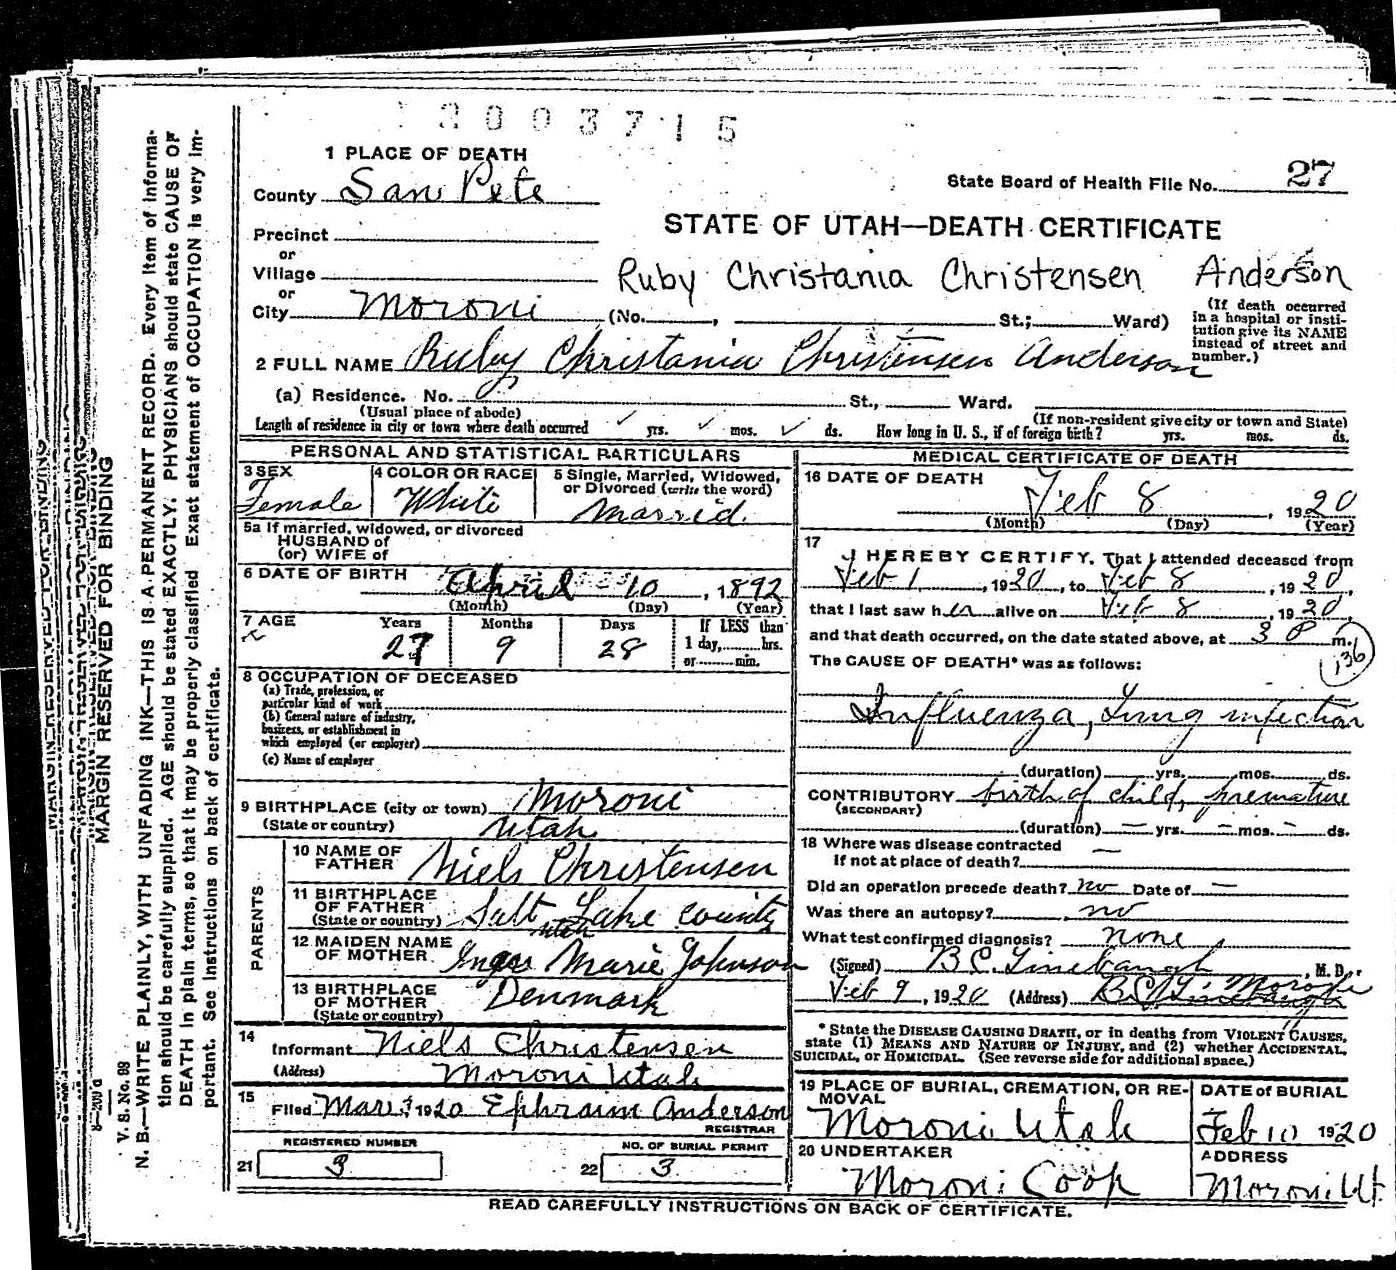 3003715
1 PLACE OF DEATH
County San Pete
State Board of Health File No. 27
STATE OF UTAH—DEATH CERTIFICATE
Precinct
or
Village
Ruby Christania Christensen Anderson
or
City Moroni (No. , St.; Ward)
(If death occurred in a hospital or institution give its NAME instead of street and number.)
2 FULL NAME Ruby Christania Christensen Anderson
(a) Residence. No. St., Ward.
(Usual place of abode) (If non-resident give city or town and State)
Length of residence in city or town where death occurred ✓ yrs. ✓ mos. ✓ ds. How long in U. S., if of foreign birth? yrs. mos. ds.
PERSONAL AND STATISTICAL PARTICULARS
3 SEX
Female
4 COLOR OR RACE
White
5 Single, Married, Widowed, or Divorced (write the word)
Married.
5a If married, widowed, or divorced
HUSBAND of
(or) WIFE of
6 DATE OF BIRTH April 10, 1892
(Month) (Day) (Year)
7 AGE Years Months Days If LESS than
27 9 28 1 day, hrs.
or min.
8 OCCUPATION OF DECEASED
(a) Trade, profession, or
particular kind of work
(b) General nature of industry,
business, or establishment in
which employed (or employer)
(c) Name of employer
9 BIRTHPLACE (city or town) Moroni
(State or country) Utah
PARENTS
10 NAME OF FATHER Niels Christensen
11 BIRTHPLACE OF FATHER (State or country) Salt Lake county
Utah
12 MAIDEN NAME OF MOTHER Inger Marie Johnson
13 BIRTHPLACE OF MOTHER (State or country) Denmark
14
Informant Niels Christensen
(Address) Moroni Utah
15
Filed Mar 3 1920 Ephraim Anderson
REGISTRAR
REGISTERED NUMBER
21 3
NO. OF BURIAL PERMIT
22 3
MEDICAL CERTIFICATE OF DEATH
16 DATE OF DEATH
Feb 8, 1920
(Month) (Day) (Year)
17
I HEREBY CERTIFY, That I attended deceased from
Feb 1, 1920, to Feb 8, 1920,
that I last saw her alive on Feb 8, 1920,
and that death occurred, on the date stated above, at 3 P m.
136
The CAUSE OF DEATH* was as follows:
Influenza, Lung infection
(duration) yrs. mos. ds.
CONTRIBUTORY birth of child, premature
(SECONDARY)
(duration) — yrs. — mos. — ds.
18 Where was disease contracted
if not at place of death? —
Did an operation precede death? no Date of —
Was there an autopsy? no
What test confirmed diagnosis? none
(Signed) B C Linebaugh, M. D.
Feb 9, 1920 (Address) Moroni
*State the DISEASE CAUSING DEATH, or in deaths from VIOLENT CAUSES,
state (1) MEANS AND NATURE OF INJURY, and (2) whether ACCIDENTAL,
SUICIDAL, or HOMICIDAL. (See reverse side for additional space.)
19 PLACE OF BURIAL, CREMATION, OR REMOVAL
Moroni Utah
DATE of BURIAL
Feb 10 1920
20 UNDERTAKER
Moroni Coop
ADDRESS
Moroni Ut.
READ CAREFULLY INSTRUCTIONS ON BACK OF CERTIFICATE.
MARGIN RESERVED FOR BINDING
V. S. No. 88
N. B.—WRITE PLAINLY, WITH UNFADING INK—THIS IS A PERMANENT RECORD. Every item of informa-
tion should be carefully supplied. AGE should be stated EXACTLY. PHYSICIANS should state CAUSE OF
DEATH in plain terms, so that it may be properly classified. Exact statement of OCCUPATION is very im-
portant. See instructions on back of certificate.